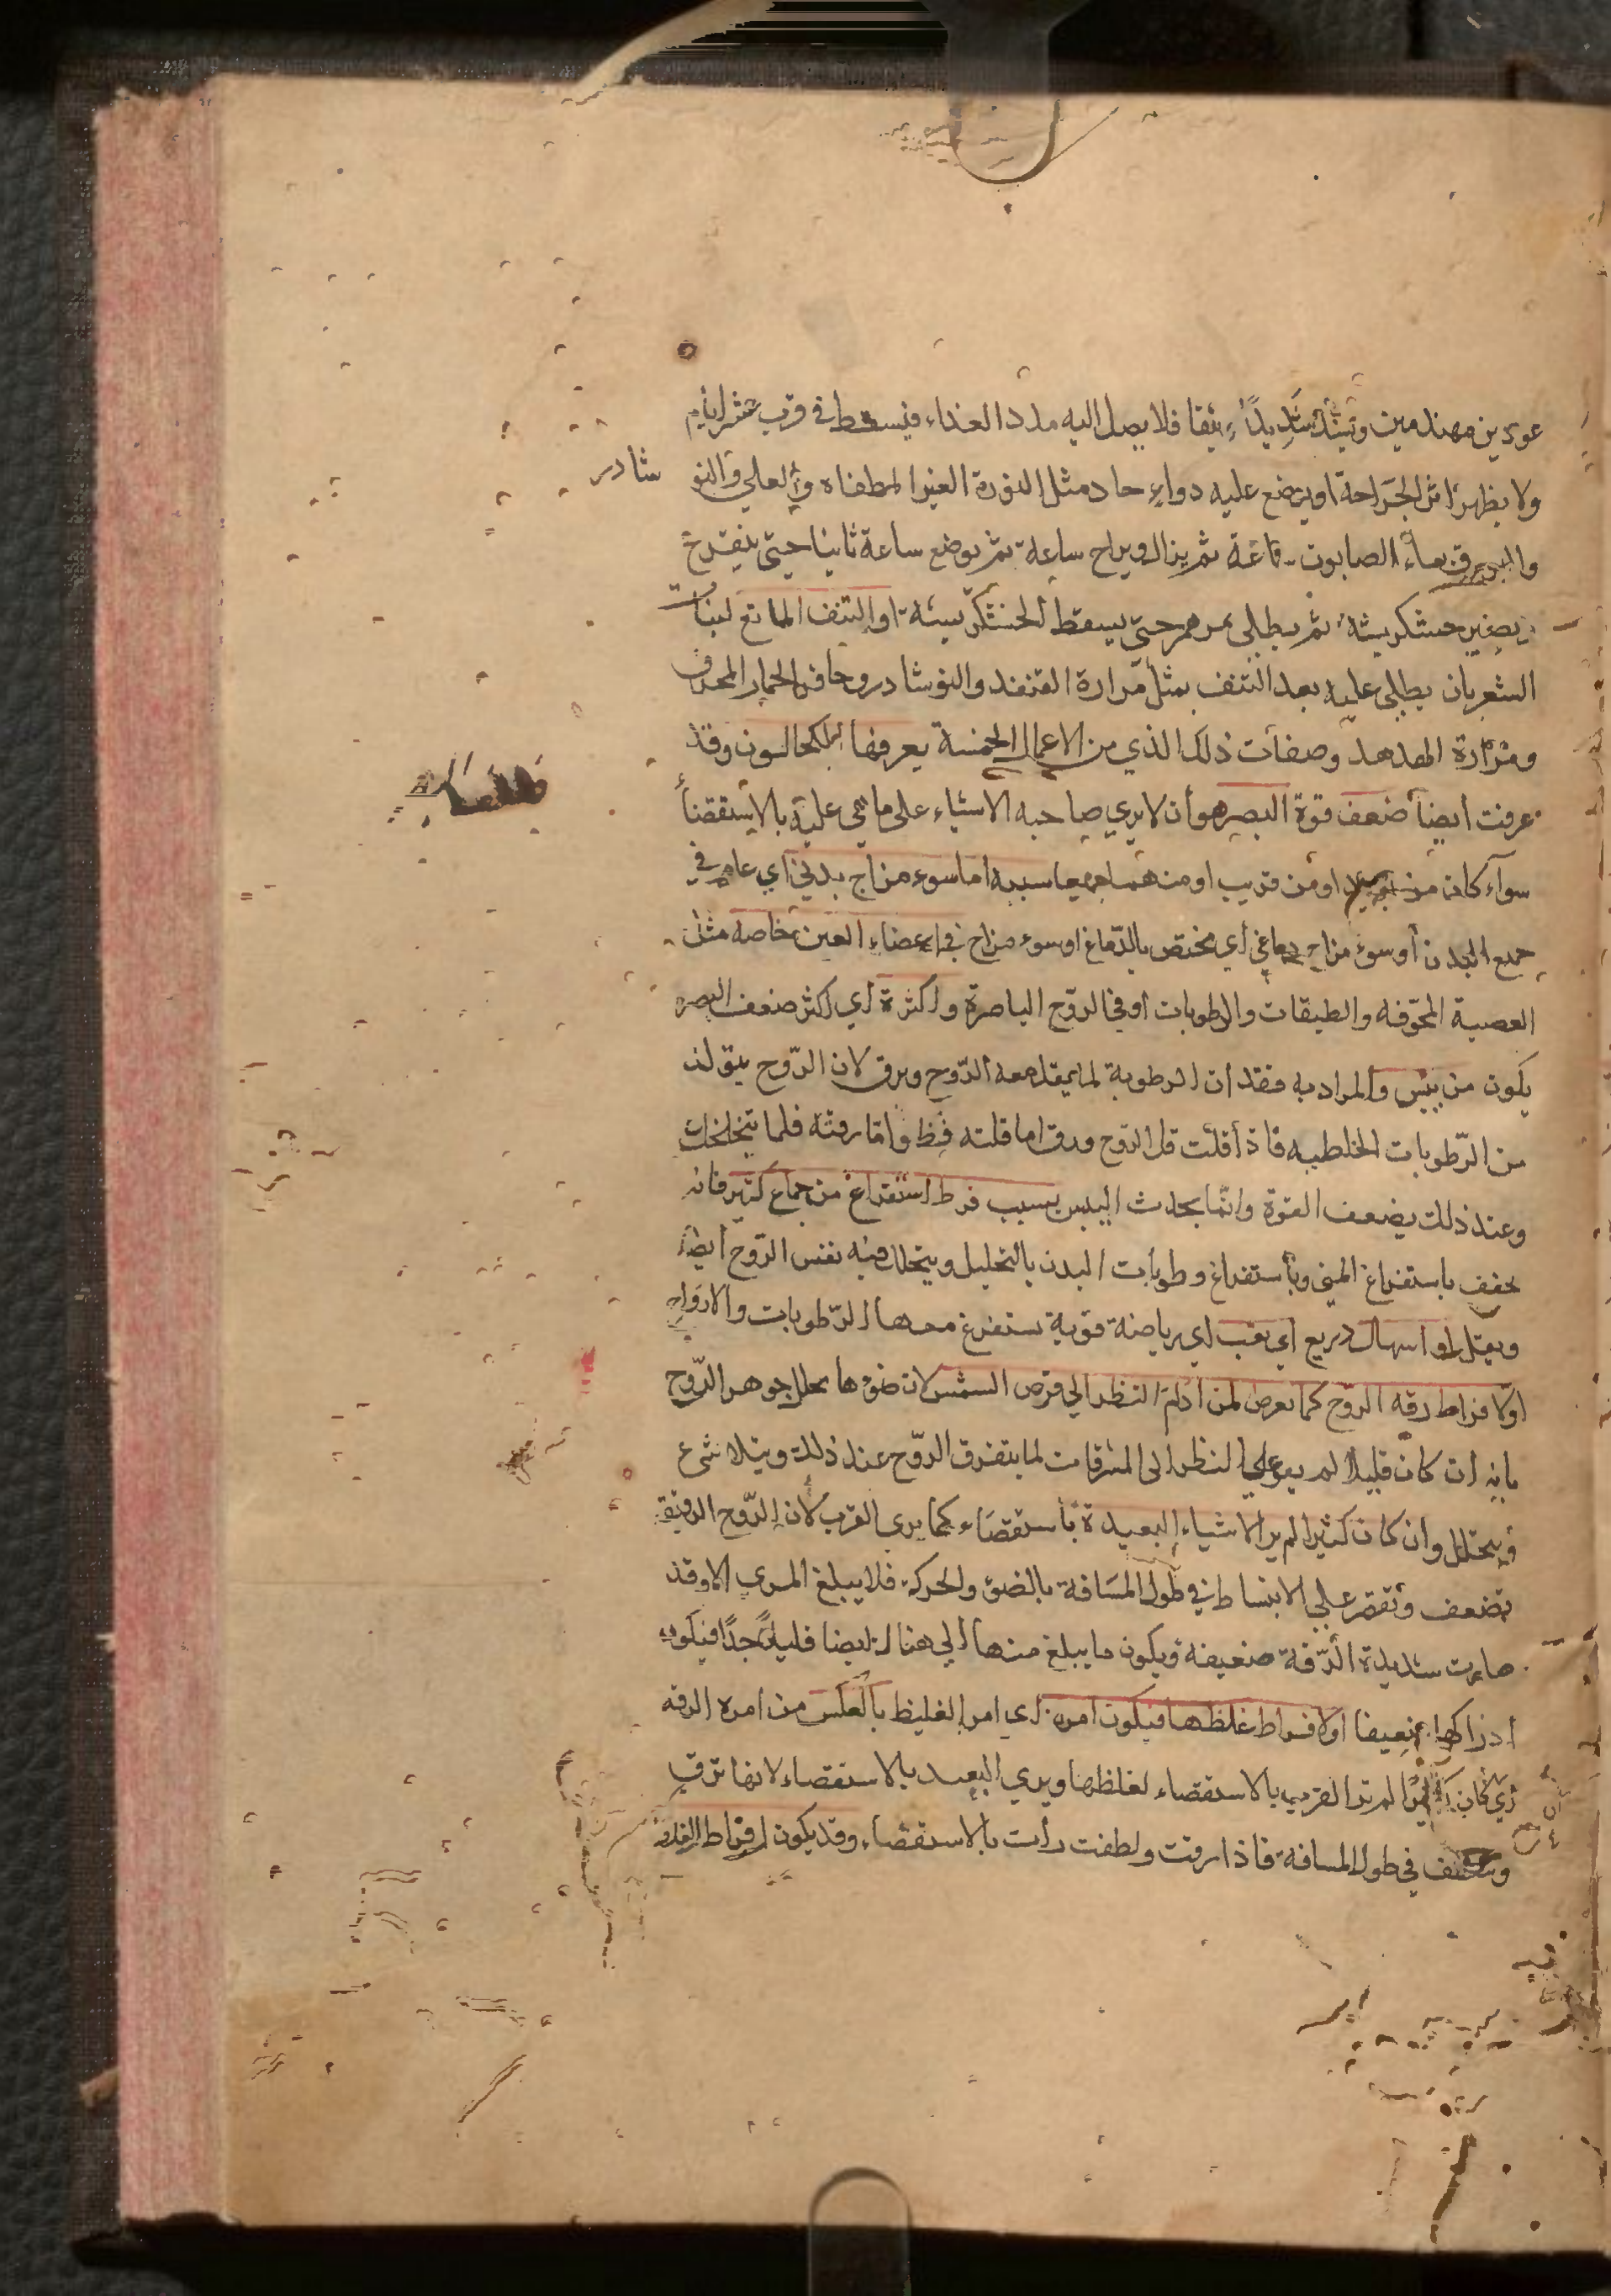 عودين مهندمين ويشد شديدًا وثيقا فلا يصل اليه مدد الغذاء فيسقط في قرب عشر ايام
ولا يظهر اثر الجراحة او يوضع عليه دواء حاد مثل النورة الغير المطفاه والعلي والنو شادر
والبورق بماء الصابون ساعة ثم يزال ويراح ساعة ثم يوضع ساعة ثانيا حتى يتقرح
ويصير خشكريشة ثم يطلى بمرهم حتى يسقط الخشكريشة او النتف المانع لنبات
الشعر بان يطلى عليه بعد النتف بمثل مرارة القنفد والنوشادر وحافر الحمار المحرق
ومرارة الهدهد وصفات ذلك الذي من الاعمال الخمسة يعرفها الكحالون وقد
عرفت ايضا ضعف قوة البصر هو أن لا يري صاحبه الاشياء على ما هي عليه بالاستقصا
سواء كان من بعيد او من قريب او منهما جميعا سببه اما سوء مزاج بدني أي عام في
جميع البدن أو سوء مزاج دماغي أي مختص بالدماغ او سوء مزاج في اعضاء العين خاصه مثل
العصبة المجوفه والطبقات والرطوبات او في الروح الباصرة واكثرة أي اكثر ضعف البصر
يكون من يبس والمراد به فقدان الرطوبة لما يقل معه الروح ويرق لان الروح يتولد
من الرطوبات الخلطيه فاذا قلت قل الروح ورق اما قلته فظ واما رقته فلما يتخلخل
وعند ذلك يضعف القوة وانما يحدث اليبس بسبب فرط استفراغ من جماع كثير فانه
يجفف باستفراغ المني وباستفراغ رطوبات البدن بالتحليل ويتحلل فيه نفس الروح أيضا
ويقل او اسهال ذريع اي تعب اي رياضة قوية تستفرغ معها الرطوبات والارواح
او لافراط رقه الروح كما يعرض لمن ادام النظر الي قرص الشمس لان ضوها يحلل جوهر الروح
بانه ان كان قليلا لم يقو على النظر الى المشرقات لما يتفرق الروح عند ذلك ويتلاشى
فيتحلل وان كان كثيرا لم ير الاشياء البعيدة باستقصاء كما يرى القرب لان الروح الرقيق
تضعف وتقصر على الانبساط في طول المسافة بالضو والحركة فلا يبلغ المرى الا وقد
صارت شديدة الرقة ضعيفة ويكون ما يبلغ منها الي هناك ايضا قليلا جدا فيكون
ادراكها ضعيفا او لافراط غلظها فيكون امره اي امر الغليظ بالعكس من امره الرقه
أي كان كثيرا لم تر القريب بالاستقصاء لغلظها ويري البعيد بالاستقصاء لانها ترق
وتلطف في طول المسافة فاذا رقت ولطفت رأت بالاستقصاء وقد يكون افراط الغلظ